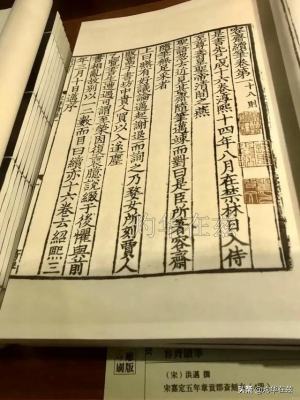 容齋續筆卷第一 十八則
是書先已成十六卷淳熙十四年八月在禁林日入侍
至尊壽皇聖帝清閒之燕
聖語忽云近見甚齋隨筆邁竦而對曰是臣所著容齋
隨筆無足采者
上曰煞有好議論邁起謝退而詢之乃婺女所刻賈人
販鬻于書坊中貴人買以入遂塵
乙覽書生遭遇可謂至榮因復裒臆說綴于後懼與前
書相亂故別以一二數而目曰續亦十六卷云紹熙三
年三月十日邁序
容齊續筆
(宋)洪邁 撰
宋嘉定五年章貢郡齋刻
头条 @灼华在兹
灼华在兹